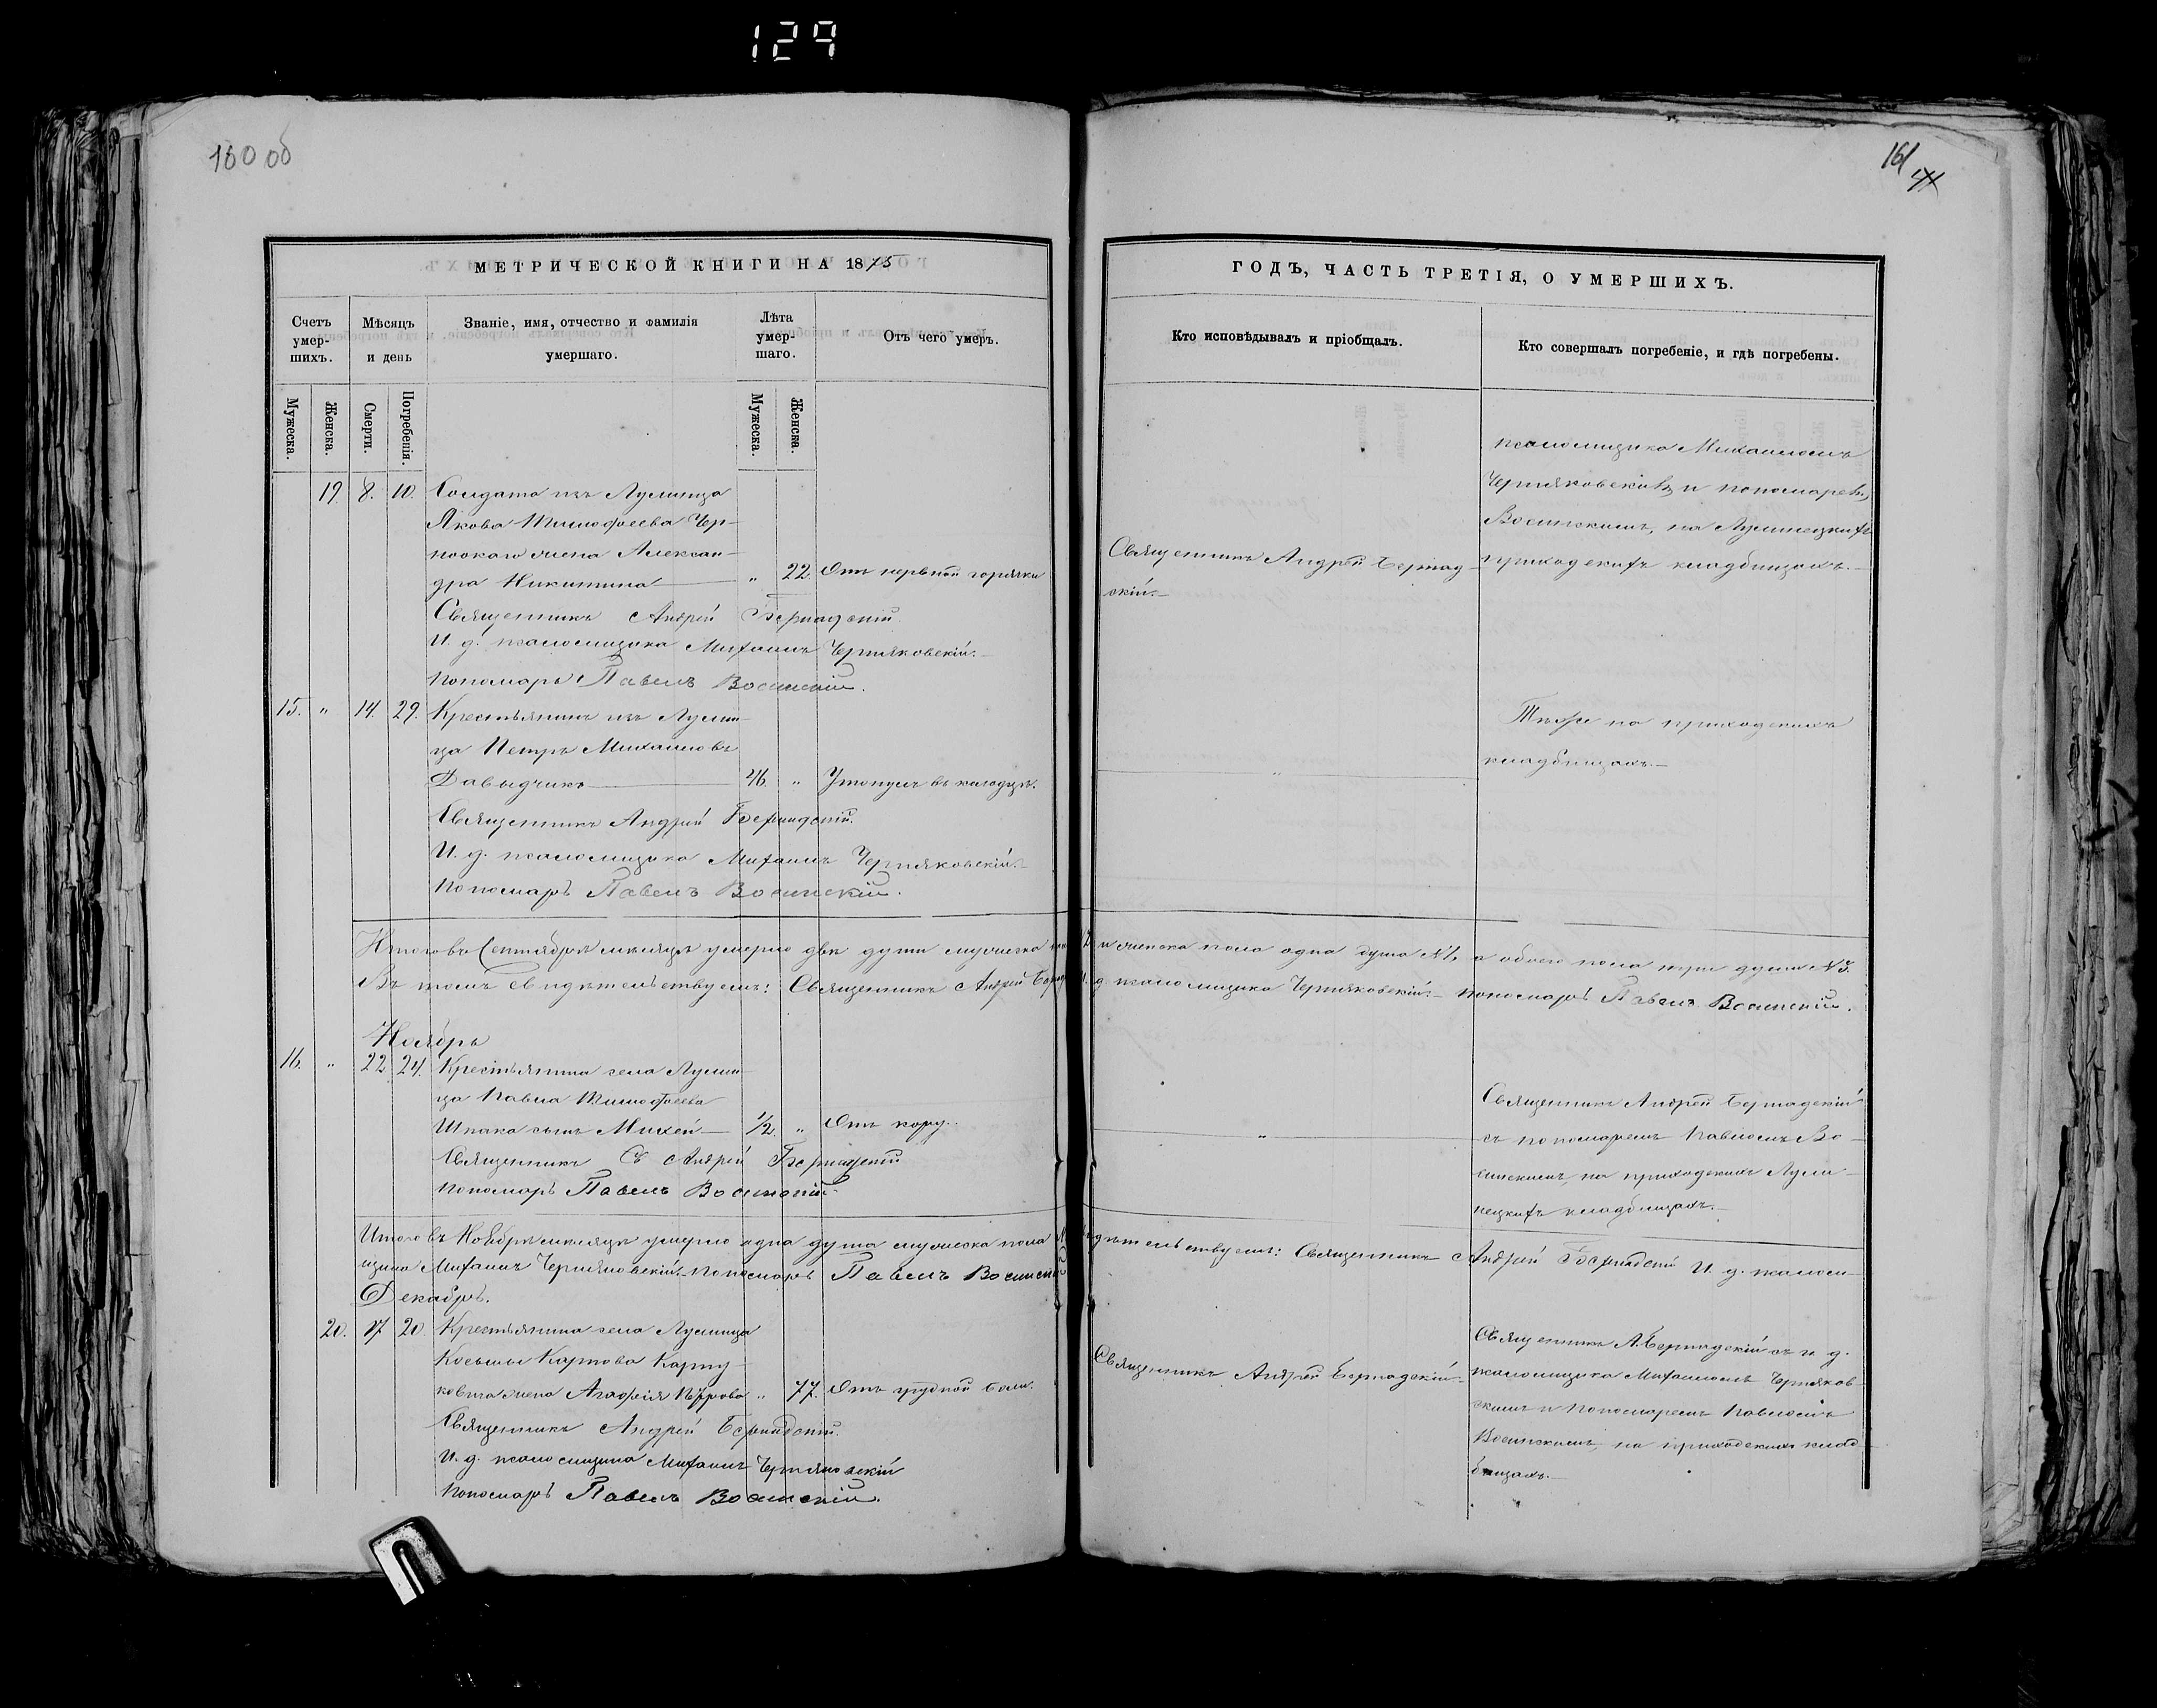 129
160 об
161
МЕТРИЧЕСКОЙ КНИГИ НА 1875
Счетъ умер-шихъ.
Мѣсяцъ и день
Званіе, имя, отчество и фамилія умершаго.
Лѣта умер-шаго.
Отъ чего умеръ.
Мужеска.
Женска.
Смерти.
Погребенія.
Мужеска.
Женска.
19. 8. 10. Солдата изъ Лулинца
Якова Тимофеева Чер-
жена Алексан-
дра Никитина „ 22. Отъ нервной горячки
Священникъ Андрей Бернадскій.
И. д. псаломщика Михаилъ Черняковскій.
Пономарь Павелъ Восинскій.
15. „ 14. 29. Крестьянинъ изъ Лулин-
ца Петръ Михаиловъ
Давыдчикъ 46. „ Утонулъ въ колодцѣ.
Священникъ Андрей Бернадскій.
И. д. псаломщика Михаилъ Черняковскій.
Пономарь Павелъ Восинскій.
Итого въ Сентябрѣ мѣсяцѣ умерло двѣ души мужеска
Въ томъ свидѣтельствуемъ: Священникъ Андрей
Ноябрь
16. „ 22 24. Крестьянина села Лулин-
ца Павла Тимофеева
Шпака сынъ Михей 1/2. „ Отъ кору.
Священникъ Андрей Бернадскій
Пономарь Павелъ Восинскій.
Итого въ Ноябрѣ мѣсяцѣ умерло одна душа мужеска пола
щика Михаилъ Черняковскій. Пономарь Павелъ Восинскій
Декабрь.
20. 17 20. Крестьянина села Лулинца
Косьмы Карпова Карпу-
ковича жена Агафія Петрова „ 77. Отъ грудной боли.
Священникъ Андрей Бернадскій.
И. д. псаломщика Михаилъ Черняковскій
Пономарь Павелъ Восинскій.
ГОДЪ, ЧАСТЬ ТРЕТІЯ, О УМЕРШИХЪ.
Кто исповѣдывалъ и пріобщалъ.
Кто совершалъ погребеніе, и гдѣ погребены.
псаломщика Михаиломъ
Черняковскимъ и пономаремъ
Восинскимъ, на Лулинецкихъ
приходскихъ кладбищахъ.
Священникъ Андрей Бернад-
скій.
Тѣже на приходскихъ
кладбищахъ.
„
и женска пола одна душа №1, а обоего пола три души №3.
д. псаломщика Черняковскій. пономарь Павелъ Восинскій.
„
Священникъ Андрей Бернадскій
съ пономаремъ Павломъ Во-
синскимъ, на приходскихъ Лули-
нецкихъ кладбищахъ.
Священникъ Андрей Бернадскій И. д. псаломъ-
Священникъ Андрей Бернадскій.
Священникъ А. Бернадскій съ и. д.
псаломщика Михаиломъ Черняков-
скимъ и пономаремъ Павломъ
Восинскимъ, на приходскихъ клад-
бищахъ.